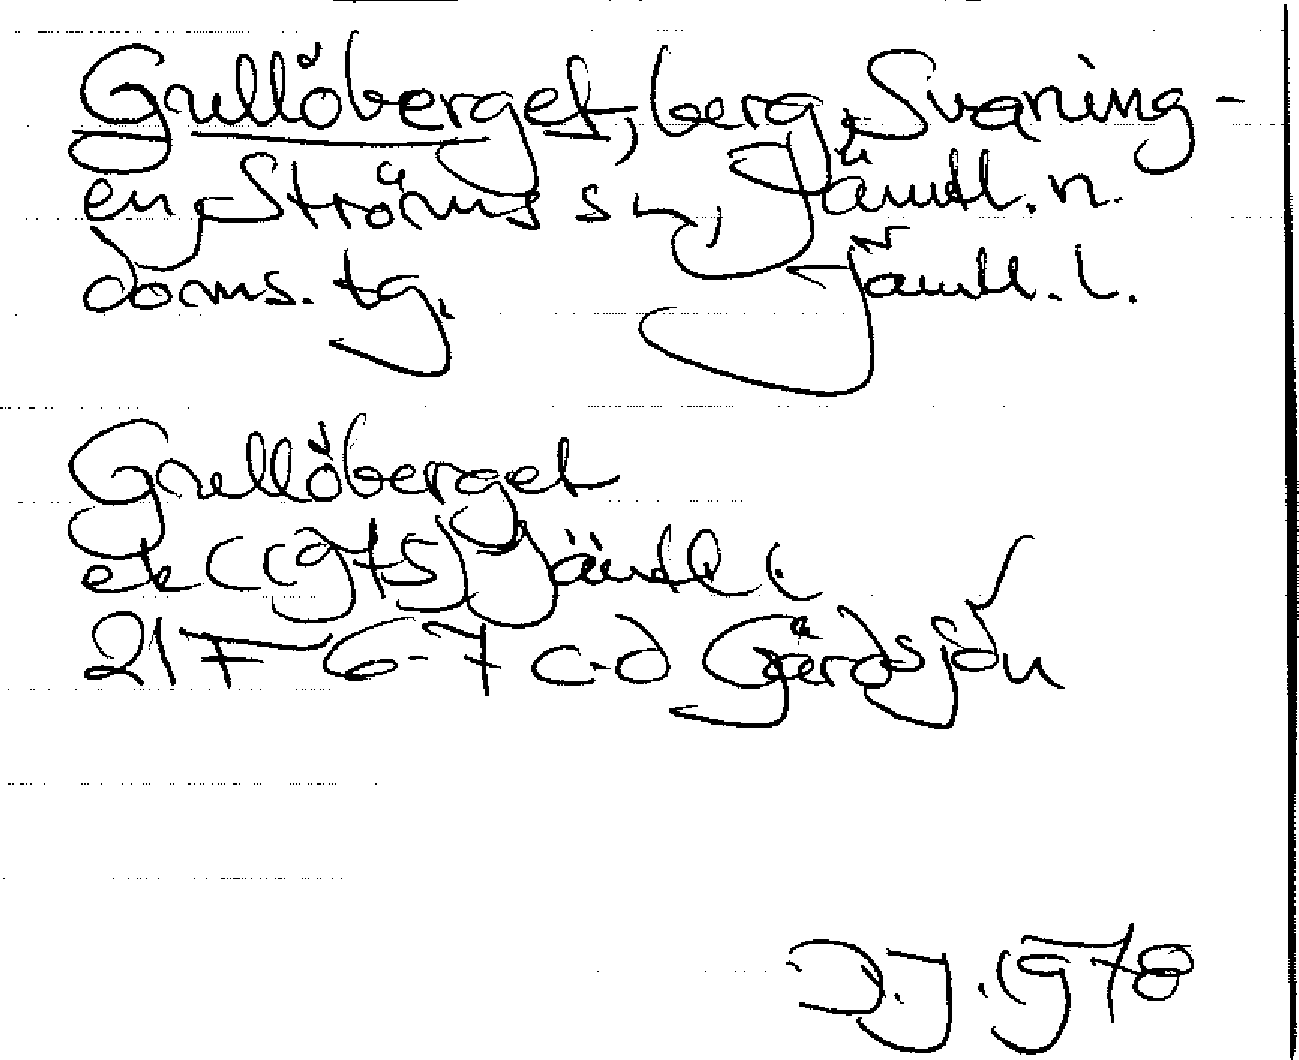 Grullöberget, berg, Svaning-
en, Ströms sn, Jämtl. n.
doms. tg. Jämtl. l.
Grullöberget
ek (1975) Jämtl l.
21 F 6-7 c-d Gärdsjön
D.J. 1978